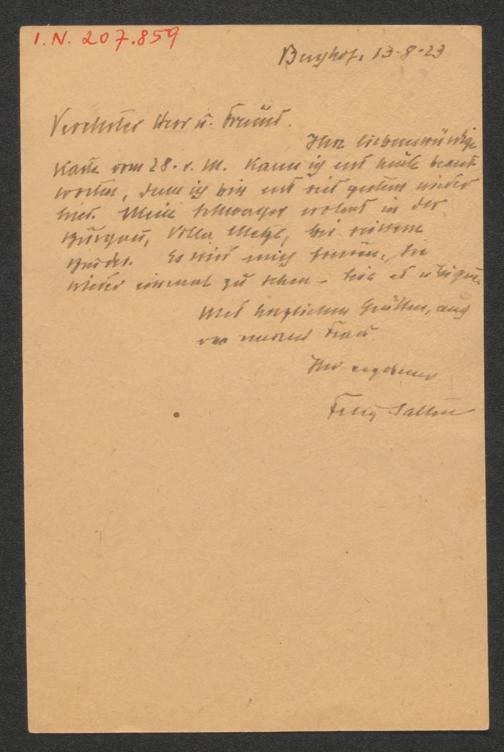 I.N. 207.859
Berghof, 13-8-23
Verehrter Herr u. Freund.
Ihre liebenswürdige
Karte vom 28. v. M. kann ich erst heute beant-
worten, denn ich bin erst seit gestern wieder
hier. Mein Schwager wohnt in der
Villa Metzl, bei seinem
Bruder. Es wird mich freuen, Sie
wieder einmal zu sehen –
Mit herzlichen Grüßen, auch
von meiner Frau
Ihr ergebener
Felix Salten